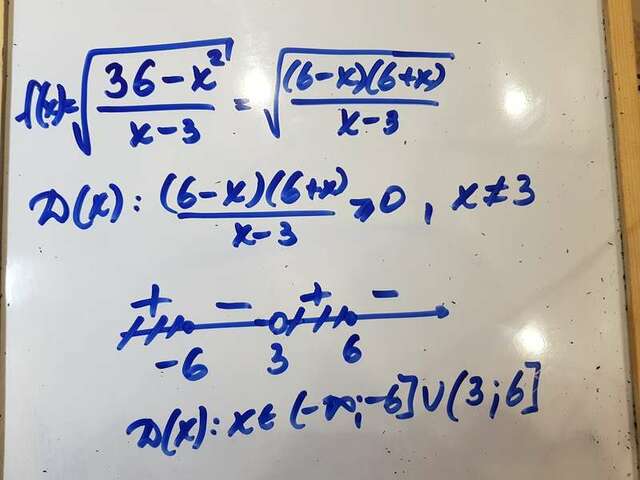 f(x)=√((36-x²)/(x-3)) = √((6-x)(6+x)/(x-3))
D(x): (6-x)(6+x)/(x-3) ≥0, x≠3
+ - + -
-6 3 6
D(x): x∈(-∞;-6]∪(3;6]